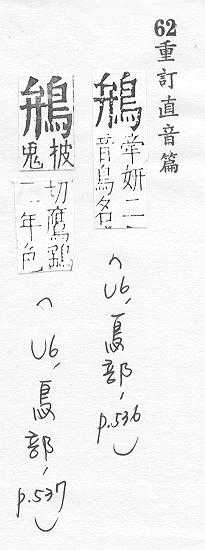 62重訂直音篇
鵧 莘妍二音鳥名 （V6，鳥部，p.536）
鵧 披鬼切鷹鷂一年色 （V6，鳥部，p.537）